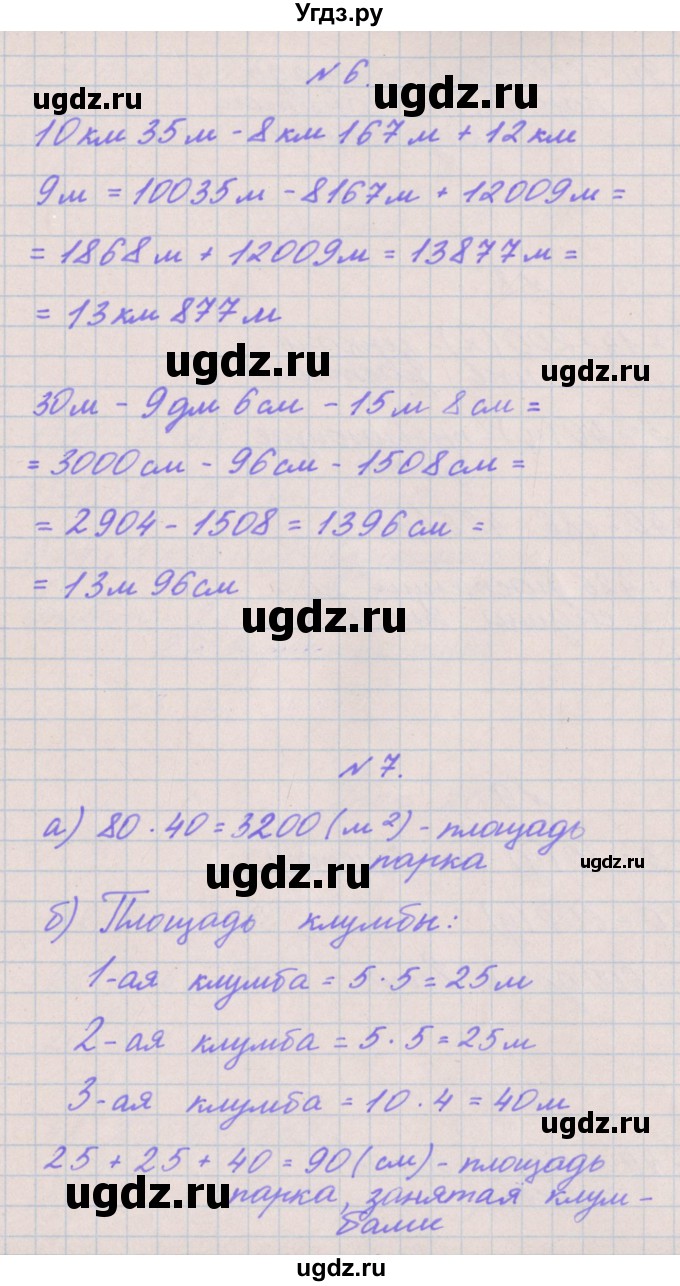 Угдз.ру
№ 6.
ugdz.ru ugdz.ru
10 км 35 м - 8 км 167 м + 12 км
9 м = 10035 м - 8167 м + 12009 м =
= 1868 м + 12009 м = 13877 м =
= 13 км 877 м
ugdz.ru ugdz.ru
30 м - 9 дм 6 см - 15 м 8 см =
= 3000 см - 96 см - 1508 см =
= 2904 - 1508 = 1396 см =
= 13 м 96 см
ugdz.ru
№ 7.
а) 80 · 40 = 3200 (м²) - площадь
парка
ugdz.ru ugdz.ru
б) Площадь клумбы:
1-ая клумба = 5 · 5 = 25 м
2-ая клумба = 5 · 5 = 25 м
3-ая клумба = 10 · 4 = 40 м
ugdz.ru
25 + 25 + 40 = 90 (см) - площадь
ugdz.ru
парка, занятая клум-
бами
ugdz.ru